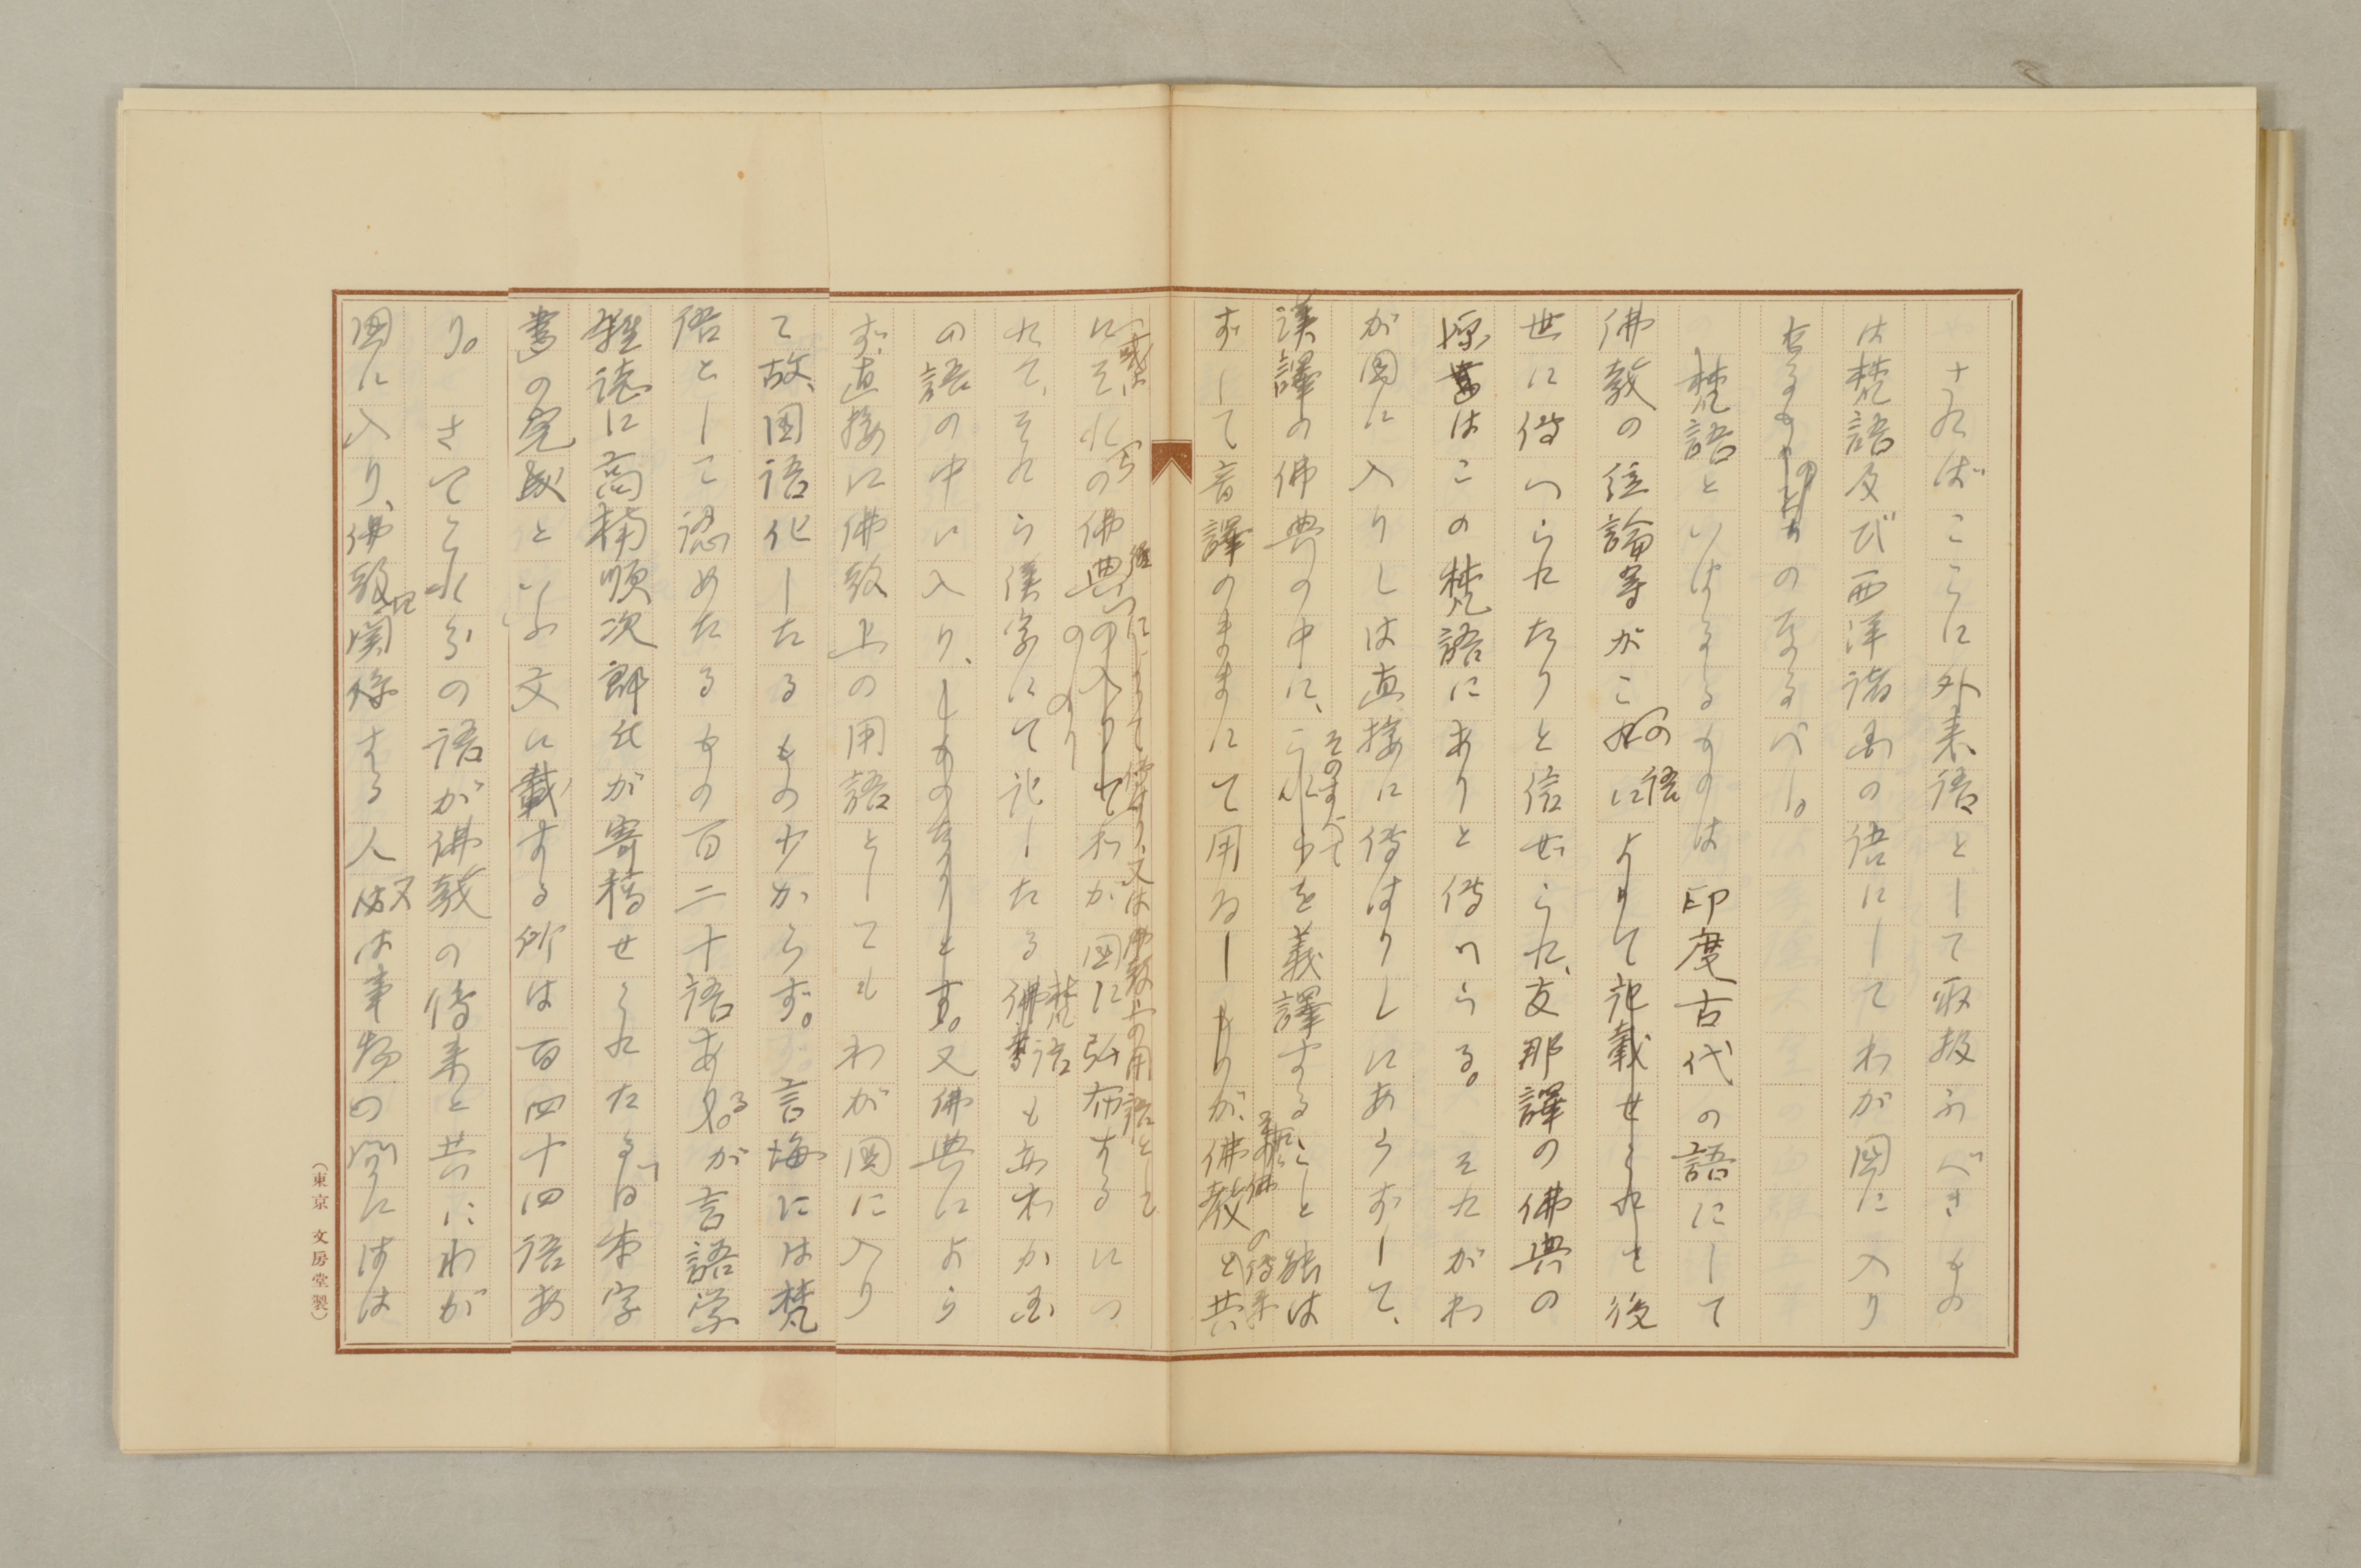 さればここに外来語として取扱ふべきもの
は梵語及び西洋諸國の語にしてわが國に入り
たるもののみなるべし。
梵語といはるるものは印度古代の語にして
佛教の經論等がこの語によりて記載せられと後
世に傳へられたりと信ぜられ、支那譯の佛典の
源はこの梵語にありと傳へらる。それがわ
が國に入りしは直接に傳はりしにあらずして、
漢譯の佛典の中に、そのすべてを義譯すること能は
ずして音譯のままにて用ゐしものが、佛教の傳来と共
にそれらの佛典によりて傳はり、又は佛教上の用語として
わが國に弘布するにつ
れて、それら漢字にて記したる梵語も亦わが國
の語の中に入りしものなりとす。又佛典によら
ず直接に佛教上の用語としてもわが國に入り
て故、国語化したるもの少からず。言海には梵
語として認めたるもの百二十語あるが言語学
雑誌に高楠順次郎氏が寄稿せられたる「日本字
書の完成」といふ文に載する所は百四十四語あ
り。さてこれらの語が佛教の傳来と共にわが
國に入り、佛教に関係する人又は事物の間には
(東京 文房堂製)